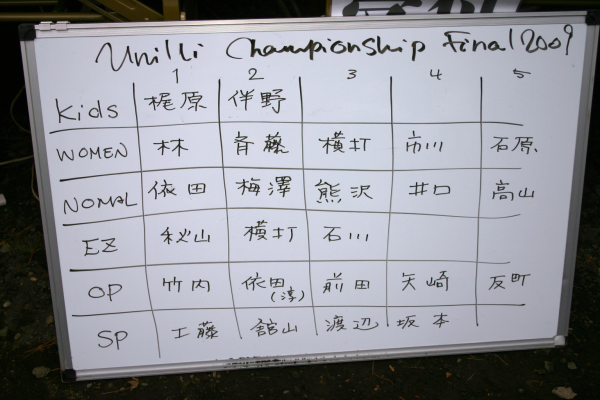 Unilli Championship Final 2009
1 2 3 4 5
Kids 梶原 伴野
WOMEN 林 斉藤 横打 市川 石原
NOMAL 依田 梅澤 熊沢 井口 高山
EZ 秋山 横打 石川
OP 竹内 依田(淳) 前田 矢崎 反町
SP 工藤 舘山 渡辺 坂本